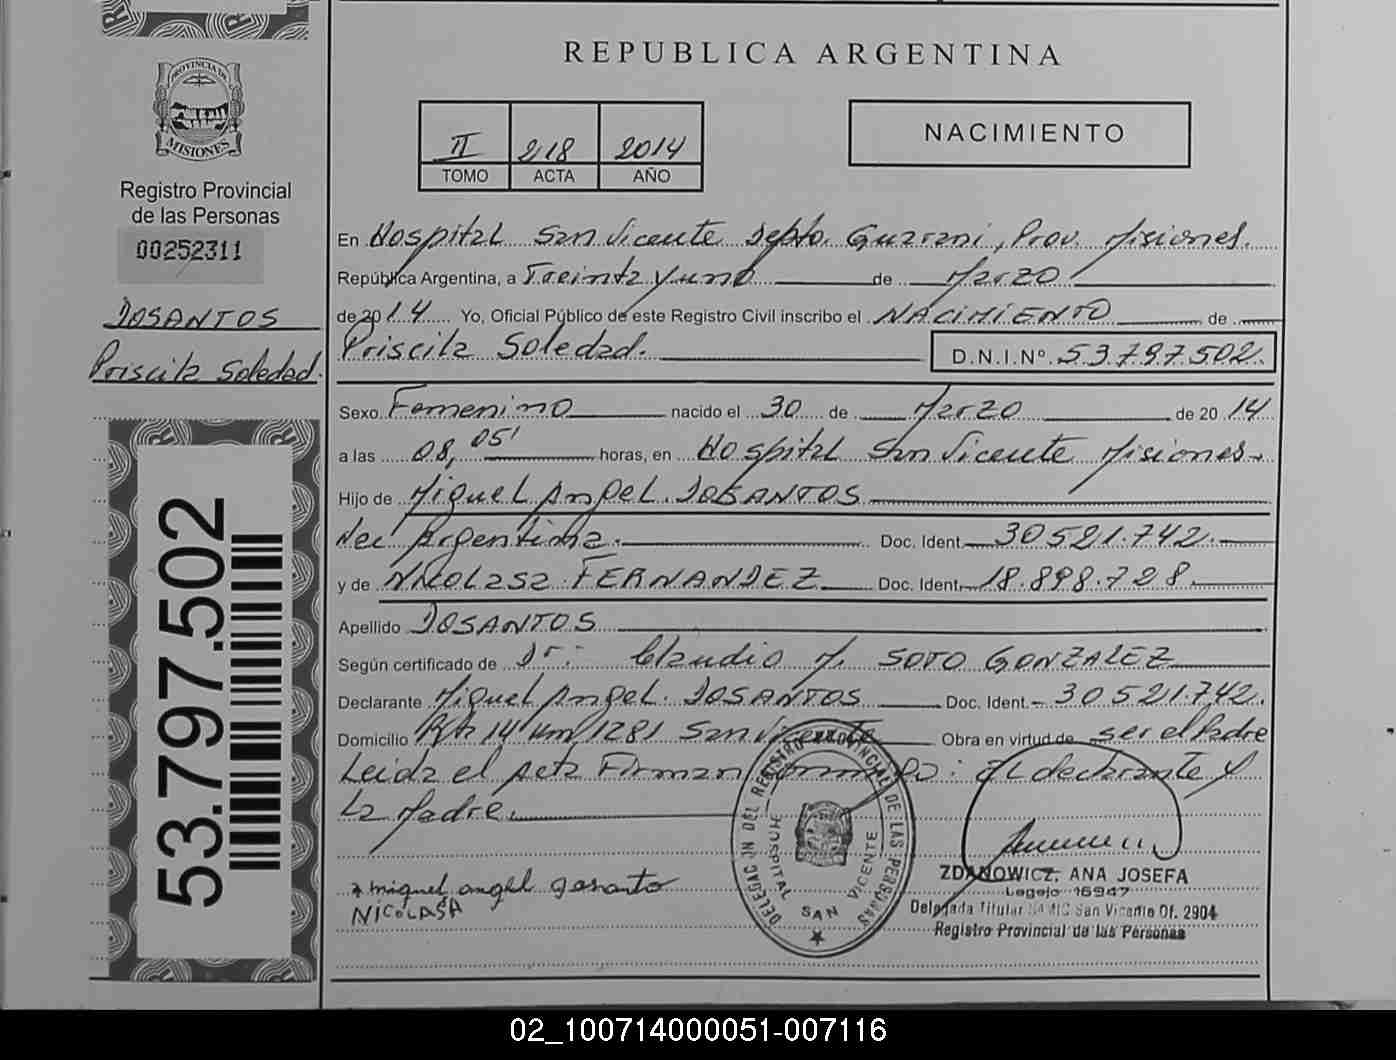 REPUBLICA ARGENTINA
PROVINCIA DE
MISIONES
Registro Provincial
de las Personas
00252311
DOSANTOS
Priscila Soledad.
53.797.502
II 218 2014
TOMO ACTA AÑO
NACIMIENTO
En Hospital San Vicente Depto. Guarani, Prov. Misiones.
República Argentina, a Treinta y uno de Marzo
de 2014 Yo, Oficial Público de este Registro Civil inscribo el NACIMIENTO de
Priscila Soledad. D.N.I.Nº 53.797.502.
Sexo Femenino nacido el 30 de Marzo de 2014
a las 08,05' horas, en Hospital San Vicente Misiones
Hijo de Miguel Angel DOSANTOS
Nac Argentina. Doc. Ident. 30521.742.
y de Nicolasa FERNANDEZ Doc. Ident. 18.898.728.
Apellido DOSANTOS
Según certificado de Dr: Claudio M. SOTO GONZALEZ
Declarante Miguel Angel DOSANTOS Doc. Ident. 30521.742.
Domicilio Rta 14 Km 1281 San Vicente Obra en virtud de ser el Padre
Leida el Acta Firman Conmigo: El declarante y
La Madre.
miguel angel
NICOLASA
DELEGACION DEL REGISTRO PROVINCIAL DE LAS PERSONAS
HOSPITAL SAN VICENTE
ZDANOWICZ, ANA JOSEFA
Legajo 16947
Delegada Titular San Vicente Of. 2904
Registro Provincial de las Personas
02_100714000051-007116